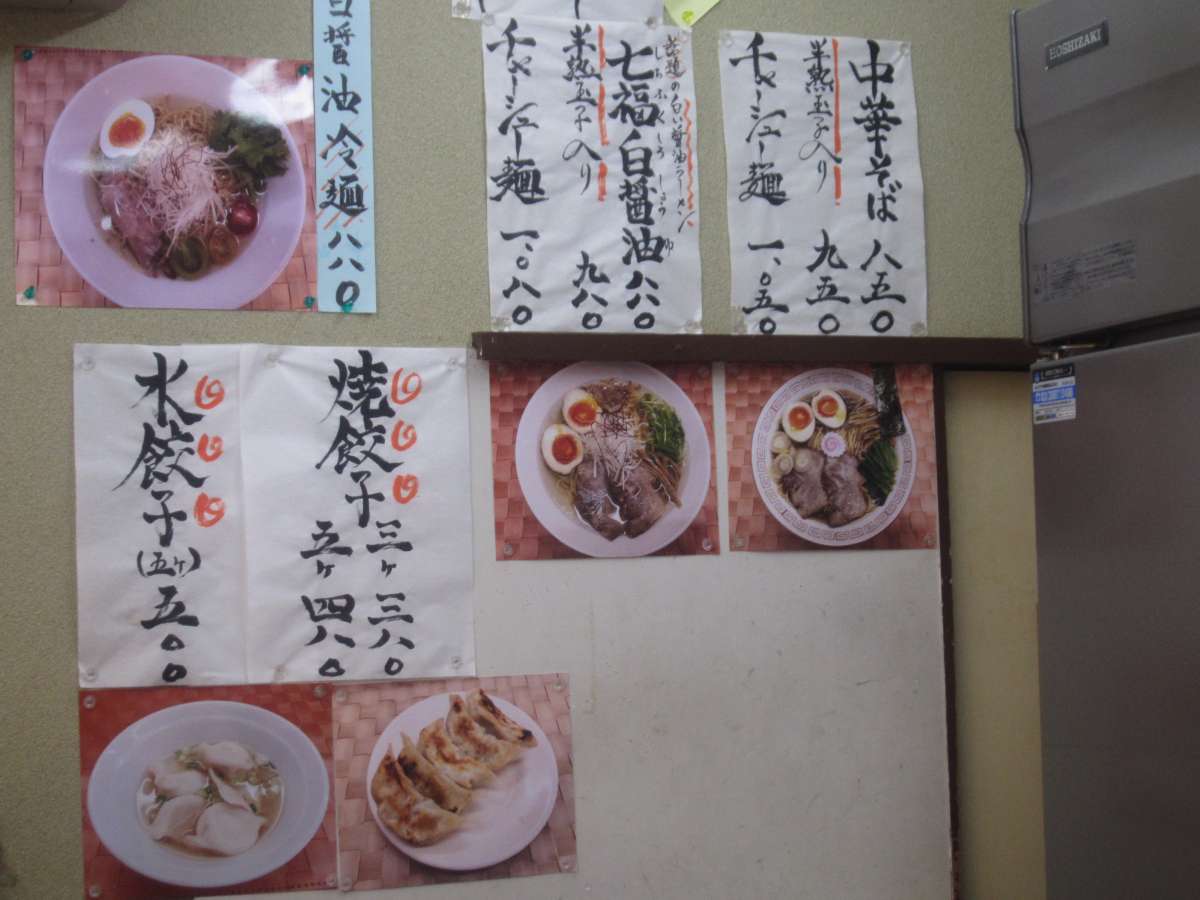 白醤油冷麺 八八〇
中華そば 八五〇
半熟玉子入り 九五〇
チャーシュー麺 一、〇五〇
話題の白い醤油ラーメン
七福白醤油 八八〇
しちふくしろしょうゆ
半熟玉子入り 九八〇
チャーシュー麺 一、〇八〇
焼餃子 三ヶ 三八〇
五ヶ 四八〇
水餃子(五ヶ) 五〇〇
HOSHIZAKI